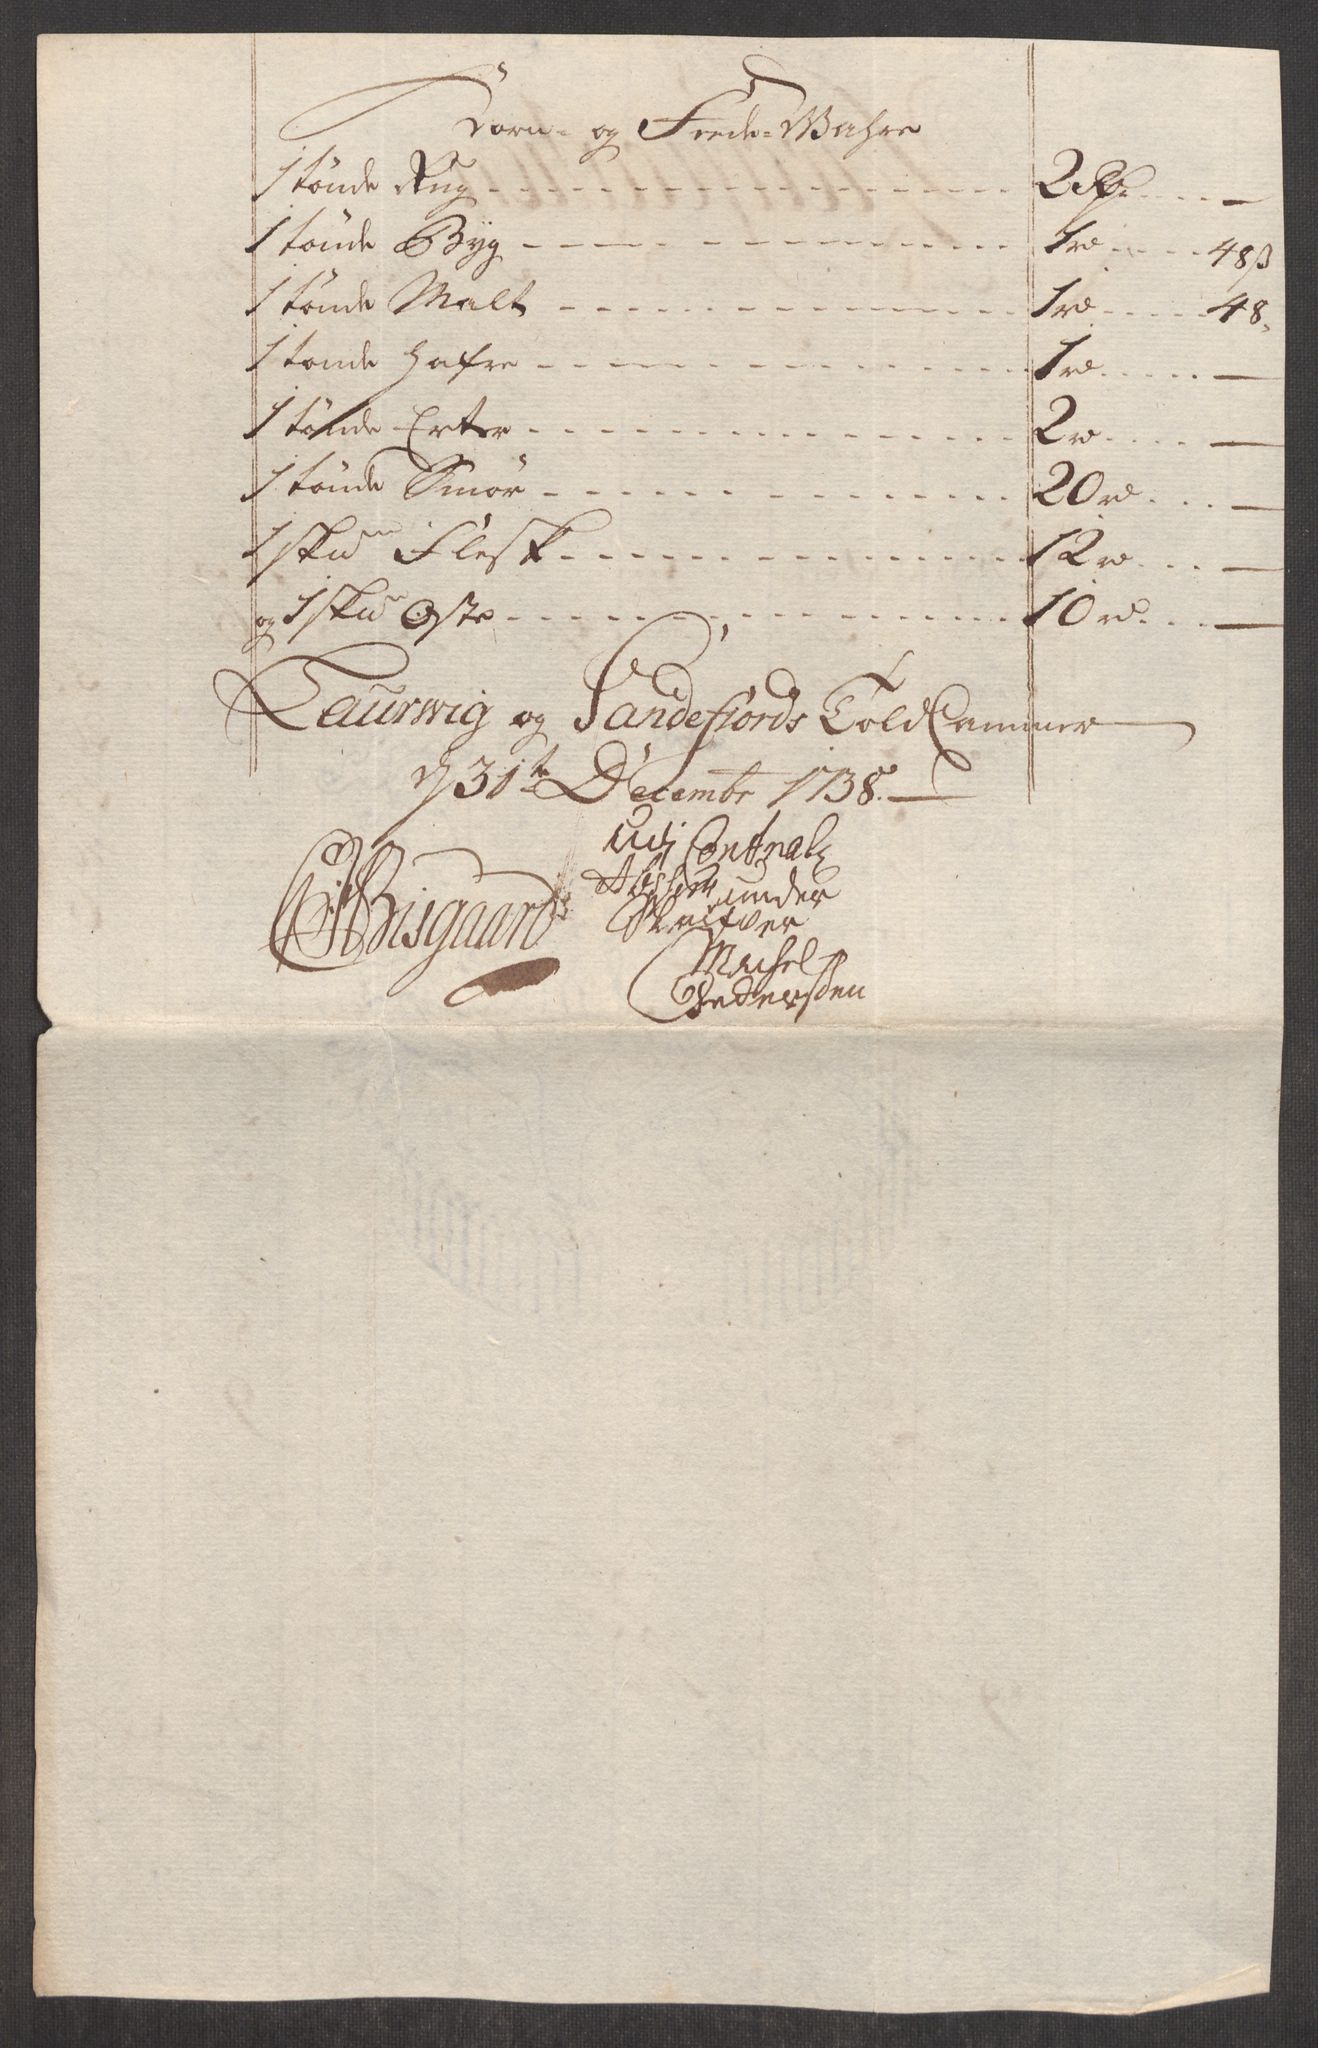 Korn- og Feede-Wahre
1 tønde Rug 2 Rd. —
1 tønde Byg 1 rd 48 ß
1 tønde Malt 1 rd 48.
1 tønde Hafre 1 rd —
1 tønde Erter 2 rd —
1 tønde Smør 20 rd —
1 skd Flesk 12 rd —
og 1 skd Oste 10 rd —
Laurwig og Sandefiords Told Cammer
d 31te Decembr 1738.
Bisgaard
under
Skrifver
Michel
Pederssen